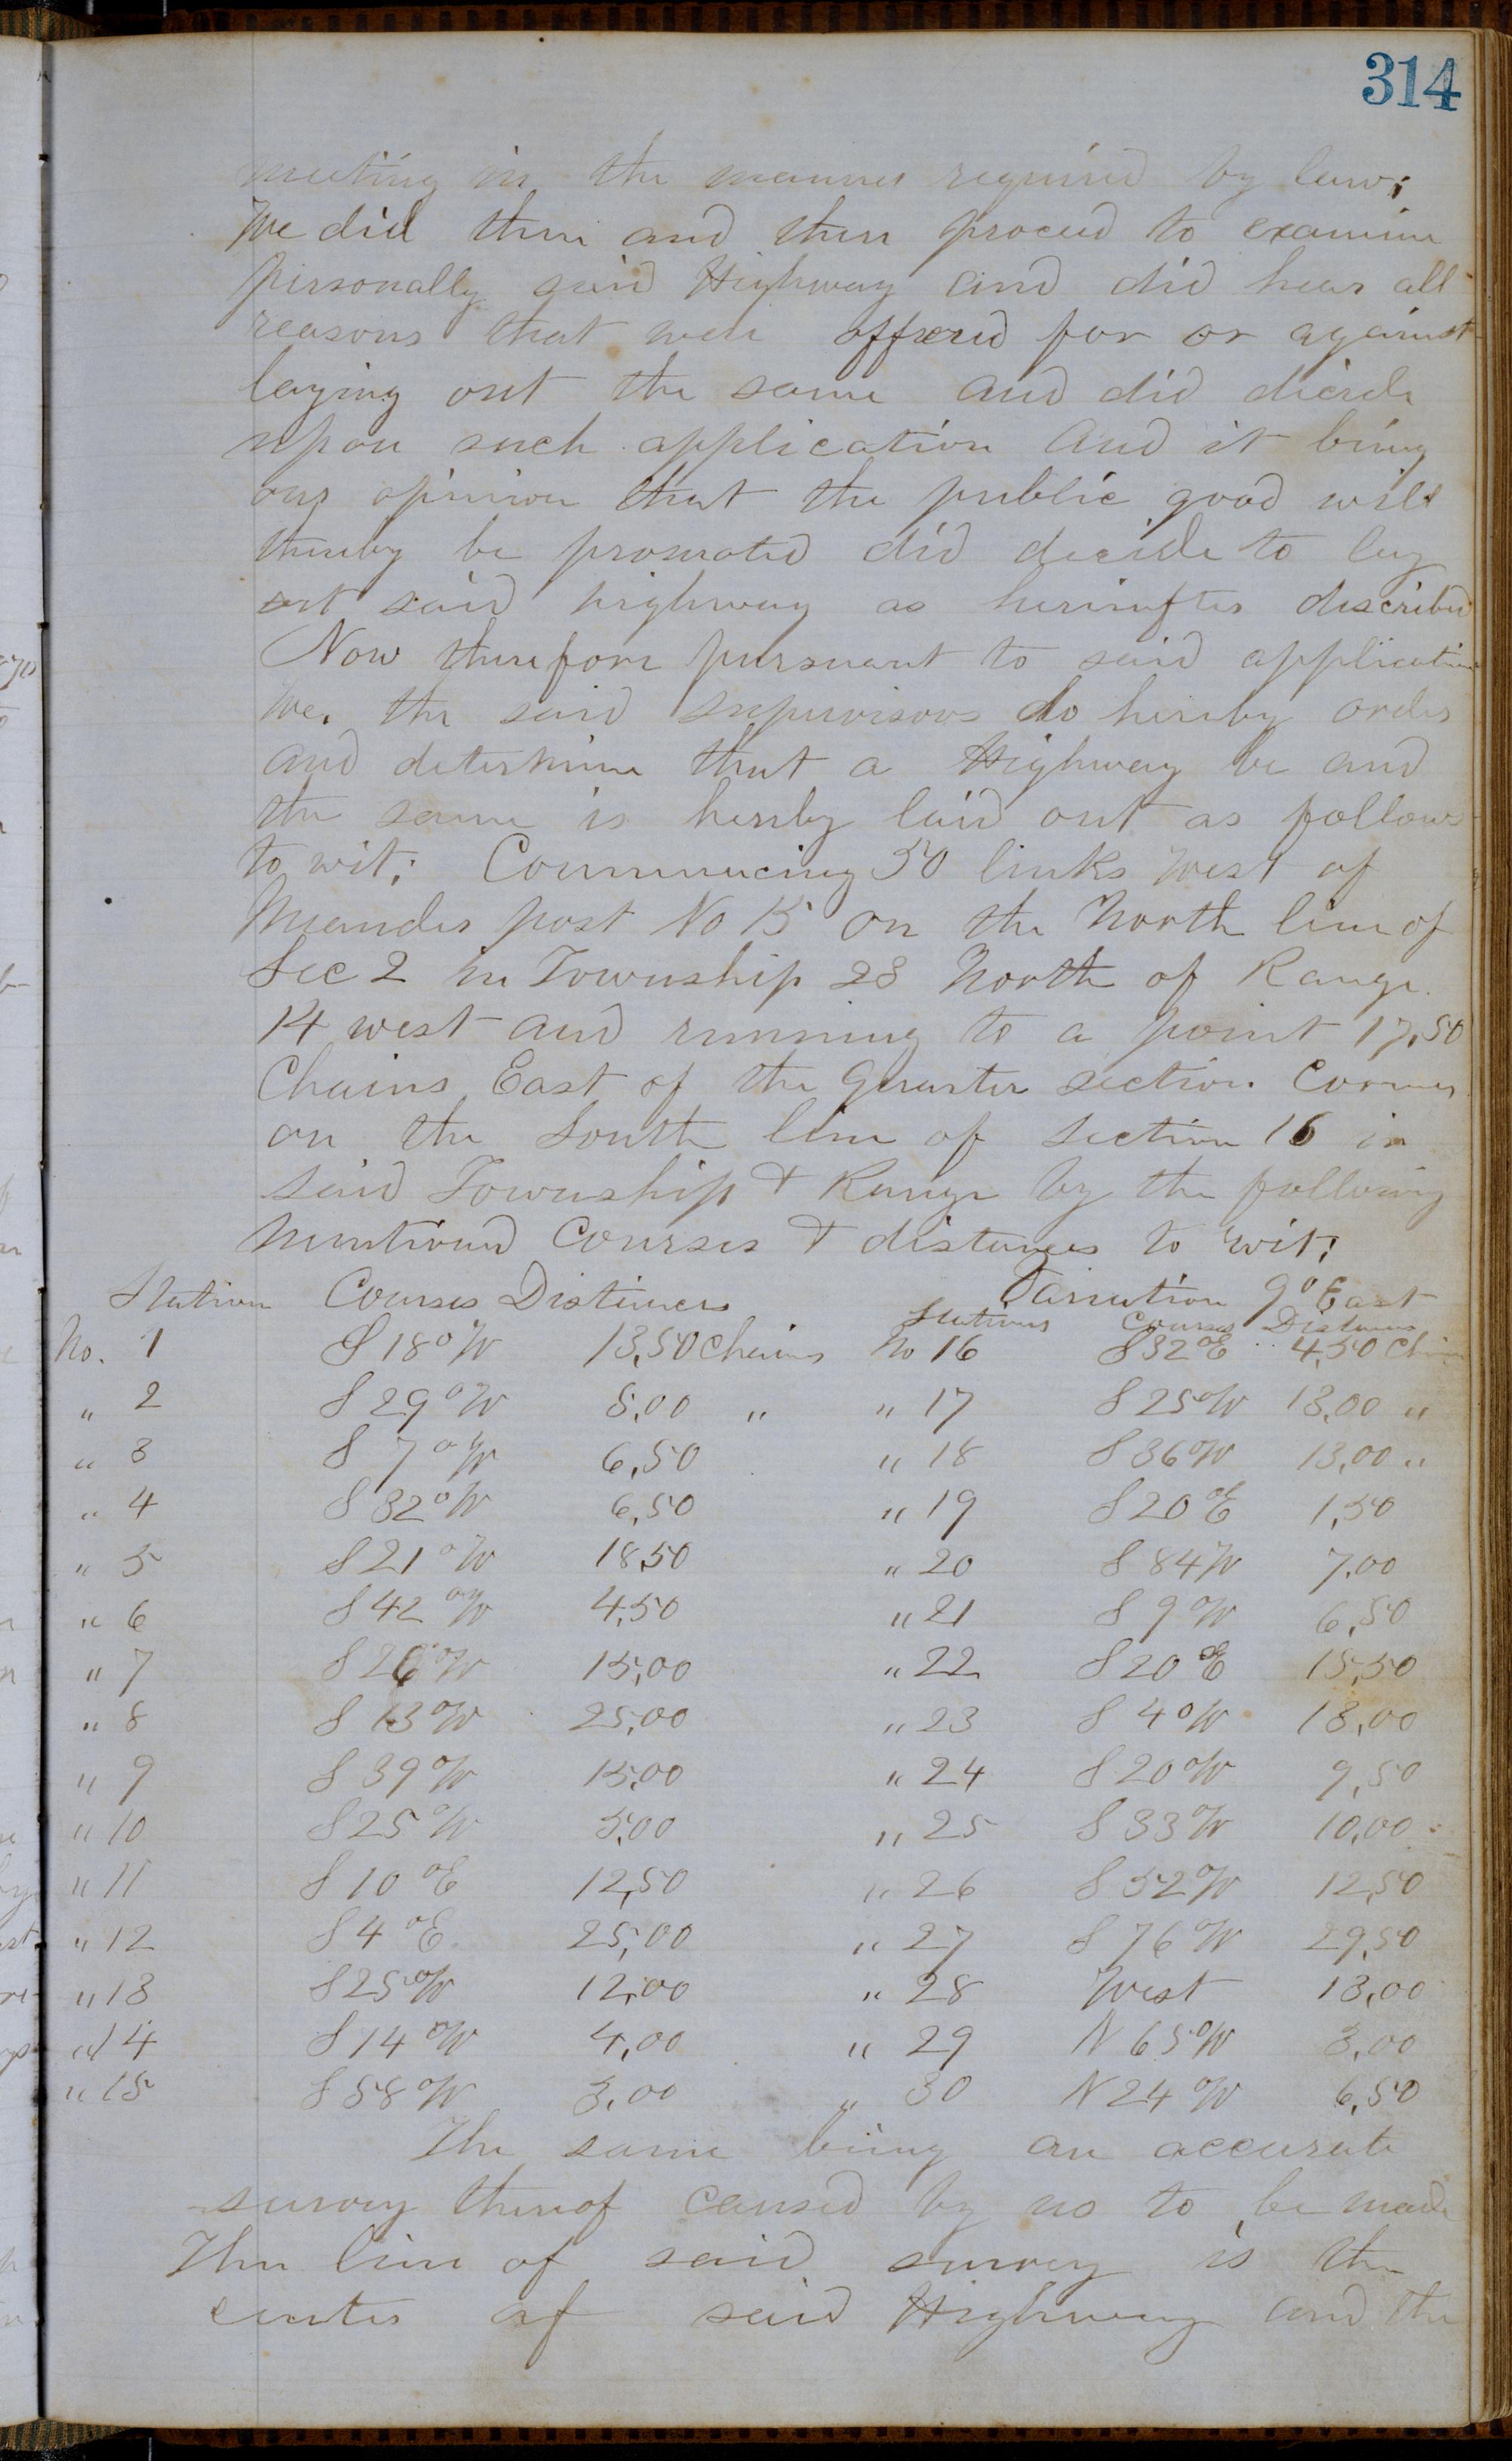 314
meeting in the manner required by law;
We did then and there proceed to examine
personally said Highway and did hear all
reasons that were offered for or against
laying out the same and did decide
upon such application And it being
our opinion that the public good will
thereby be promoted did decide to lay
out said highway as herinafter described
Now therefore pursuant to said application
We, the said supervisors do hereby order
and determine that a Highway be and
the same is hereby laid out as follows
to wit; Commencing 50 links West of
Meander post No 15 on the North line of
Sec 2 in Township 28 North of Range
14 west and running to a point 17,50
Chains East of the Quarter section Corner
on the South line of Section 16 in
said Township & Range by the following
mentioned Courses & distances to wit;
Station Courses Distances Variation 9° East
Stations Courses Distances
No. 1 S 18° W 13,50 Chains No 16 S 32° E 4,50 Chains
" 2 S 29° W 5,00 " " 17 S 25° W 13,00 "
" 3 S 7° W 6,50 " 18 S 36° W 13,00 "
" 4 S 32° W 6,50 " 19 S 20° E 1,50
" 5 S 21° W 18,50 " 20 S 84 W 7,00
" 6 S 42° W 4,50 " 21 S 9° W 6,50
" 7 S 26° W 15,00 " 22 S 20° E 15,50
" 8 S 13° W 25,00 " 23 S 4° W 13,00
" 9 S 39° W 15,00 " 24 S 20° W 9,50
" 10 S 25° W 5,00 " 25 S 33° W 10,00
" 11 S 10° E 12,50 " 26 S 52° W 12,50
" 12 S 4° E 25,00 " 27 S 76° W 29,50
" 13 S 25° W 12,00 " 28 West 13,00
" 14 S 14° W 4,00 " 29 N 65° W 3,00
" 15 S 58° W 3,00 " 30 N 24° W 6,50
The same being an accurate
survey thereof caused by us to be made
The line of said survey is the
center of said Highway and the